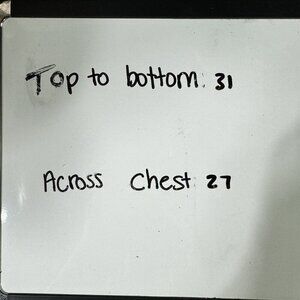 Top to bottom: 31
Across Chest 27